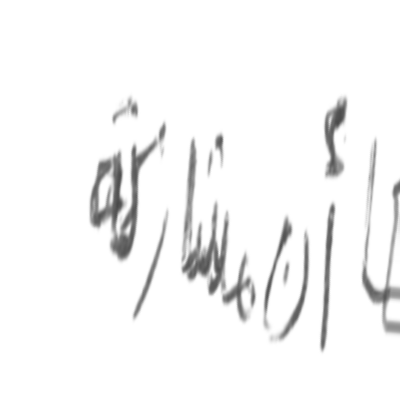 أن مشاركة